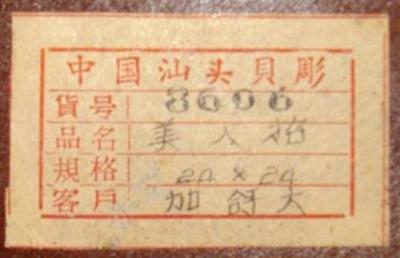 中国汕头貝彫
貨号 3606
品名 美人
規格 20 × 24
客戶 加